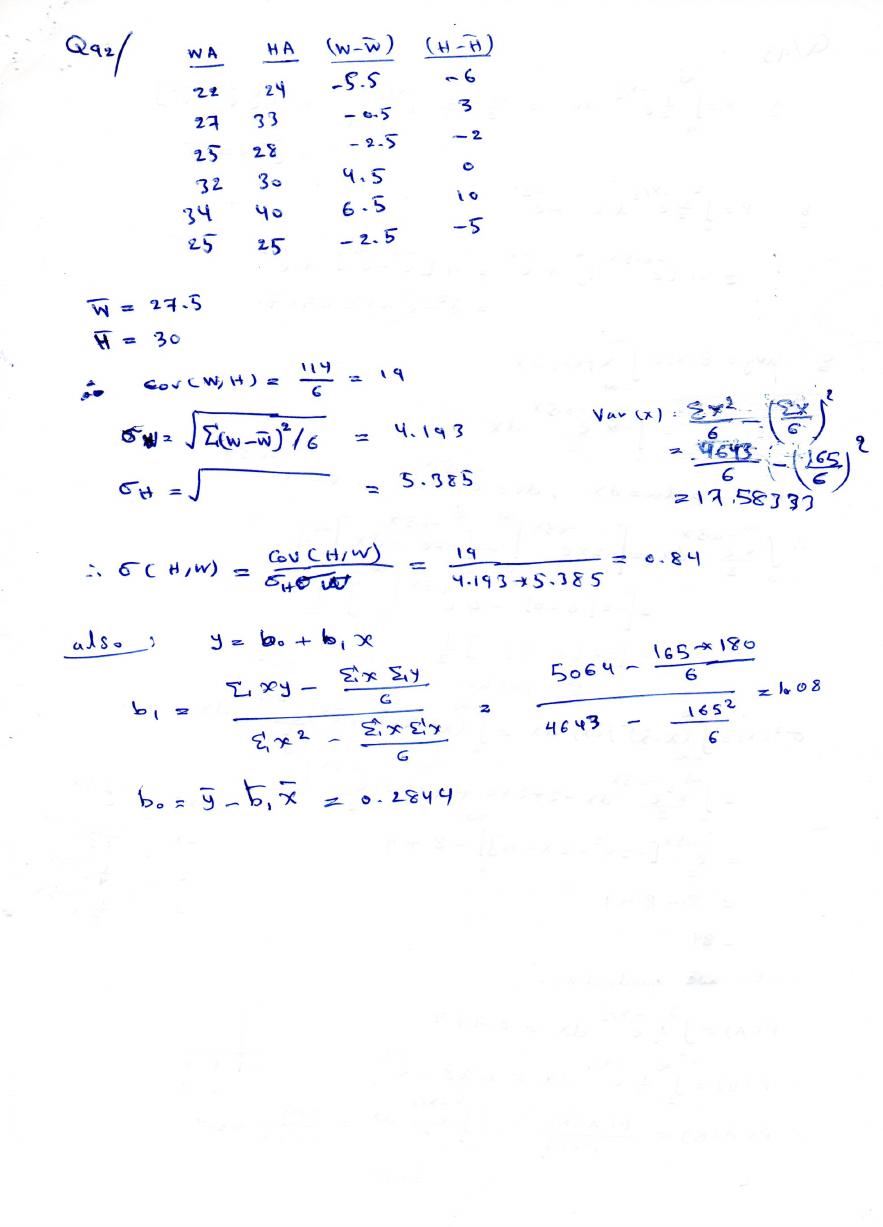 Q92/ WA HA (W-W̄) (H-H̄)
22 24 -5.5 -6
27 33 -0.5 3
25 28 -2.5 -2
32 30 4.5 0
34 40 6.5 10
25 25 -2.5 -5
W̄ = 27.5
H̄ = 30
Cov(W,H) = 114/6 = 19
σW = √Σ(W-W̄)²/6 = 4.193
σH = √ = 5.385
Var(x) : Σx²/6 - (Σx/6)²
= 4643/6 - (165/6)²
= 17.58333
∴ σ(H,W) = Cov(H,W)/σHσW = 19/4.193*5.385 = 0.84
also, y = b₀ + b₁x
b₁ = Σxy - ΣxΣy/6 / Σx² - ΣxΣx/6 = 5064 - 165*180/6 / 4643 - 165²/6 = 1.08
b₀ = ȳ - b₁x̄ = 0.2844